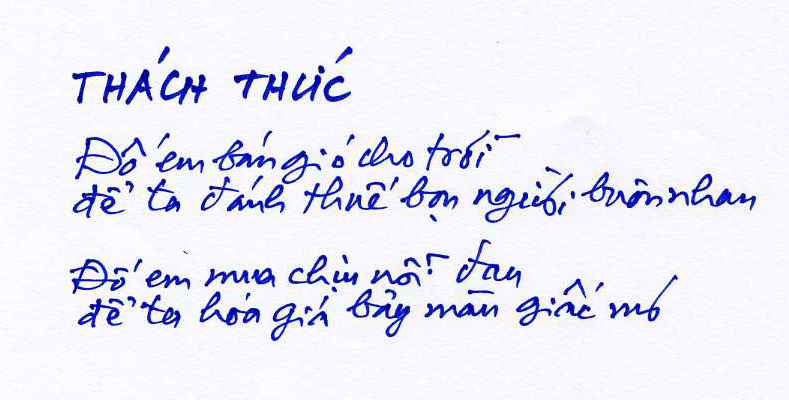 THÁCH THỨC
Đố em bán gió cho trời
để ta đánh thuế bọn người buôn nhau
Đố em mua chịu nỗi đau
để ta hóa giá bảy màu giấc mơ